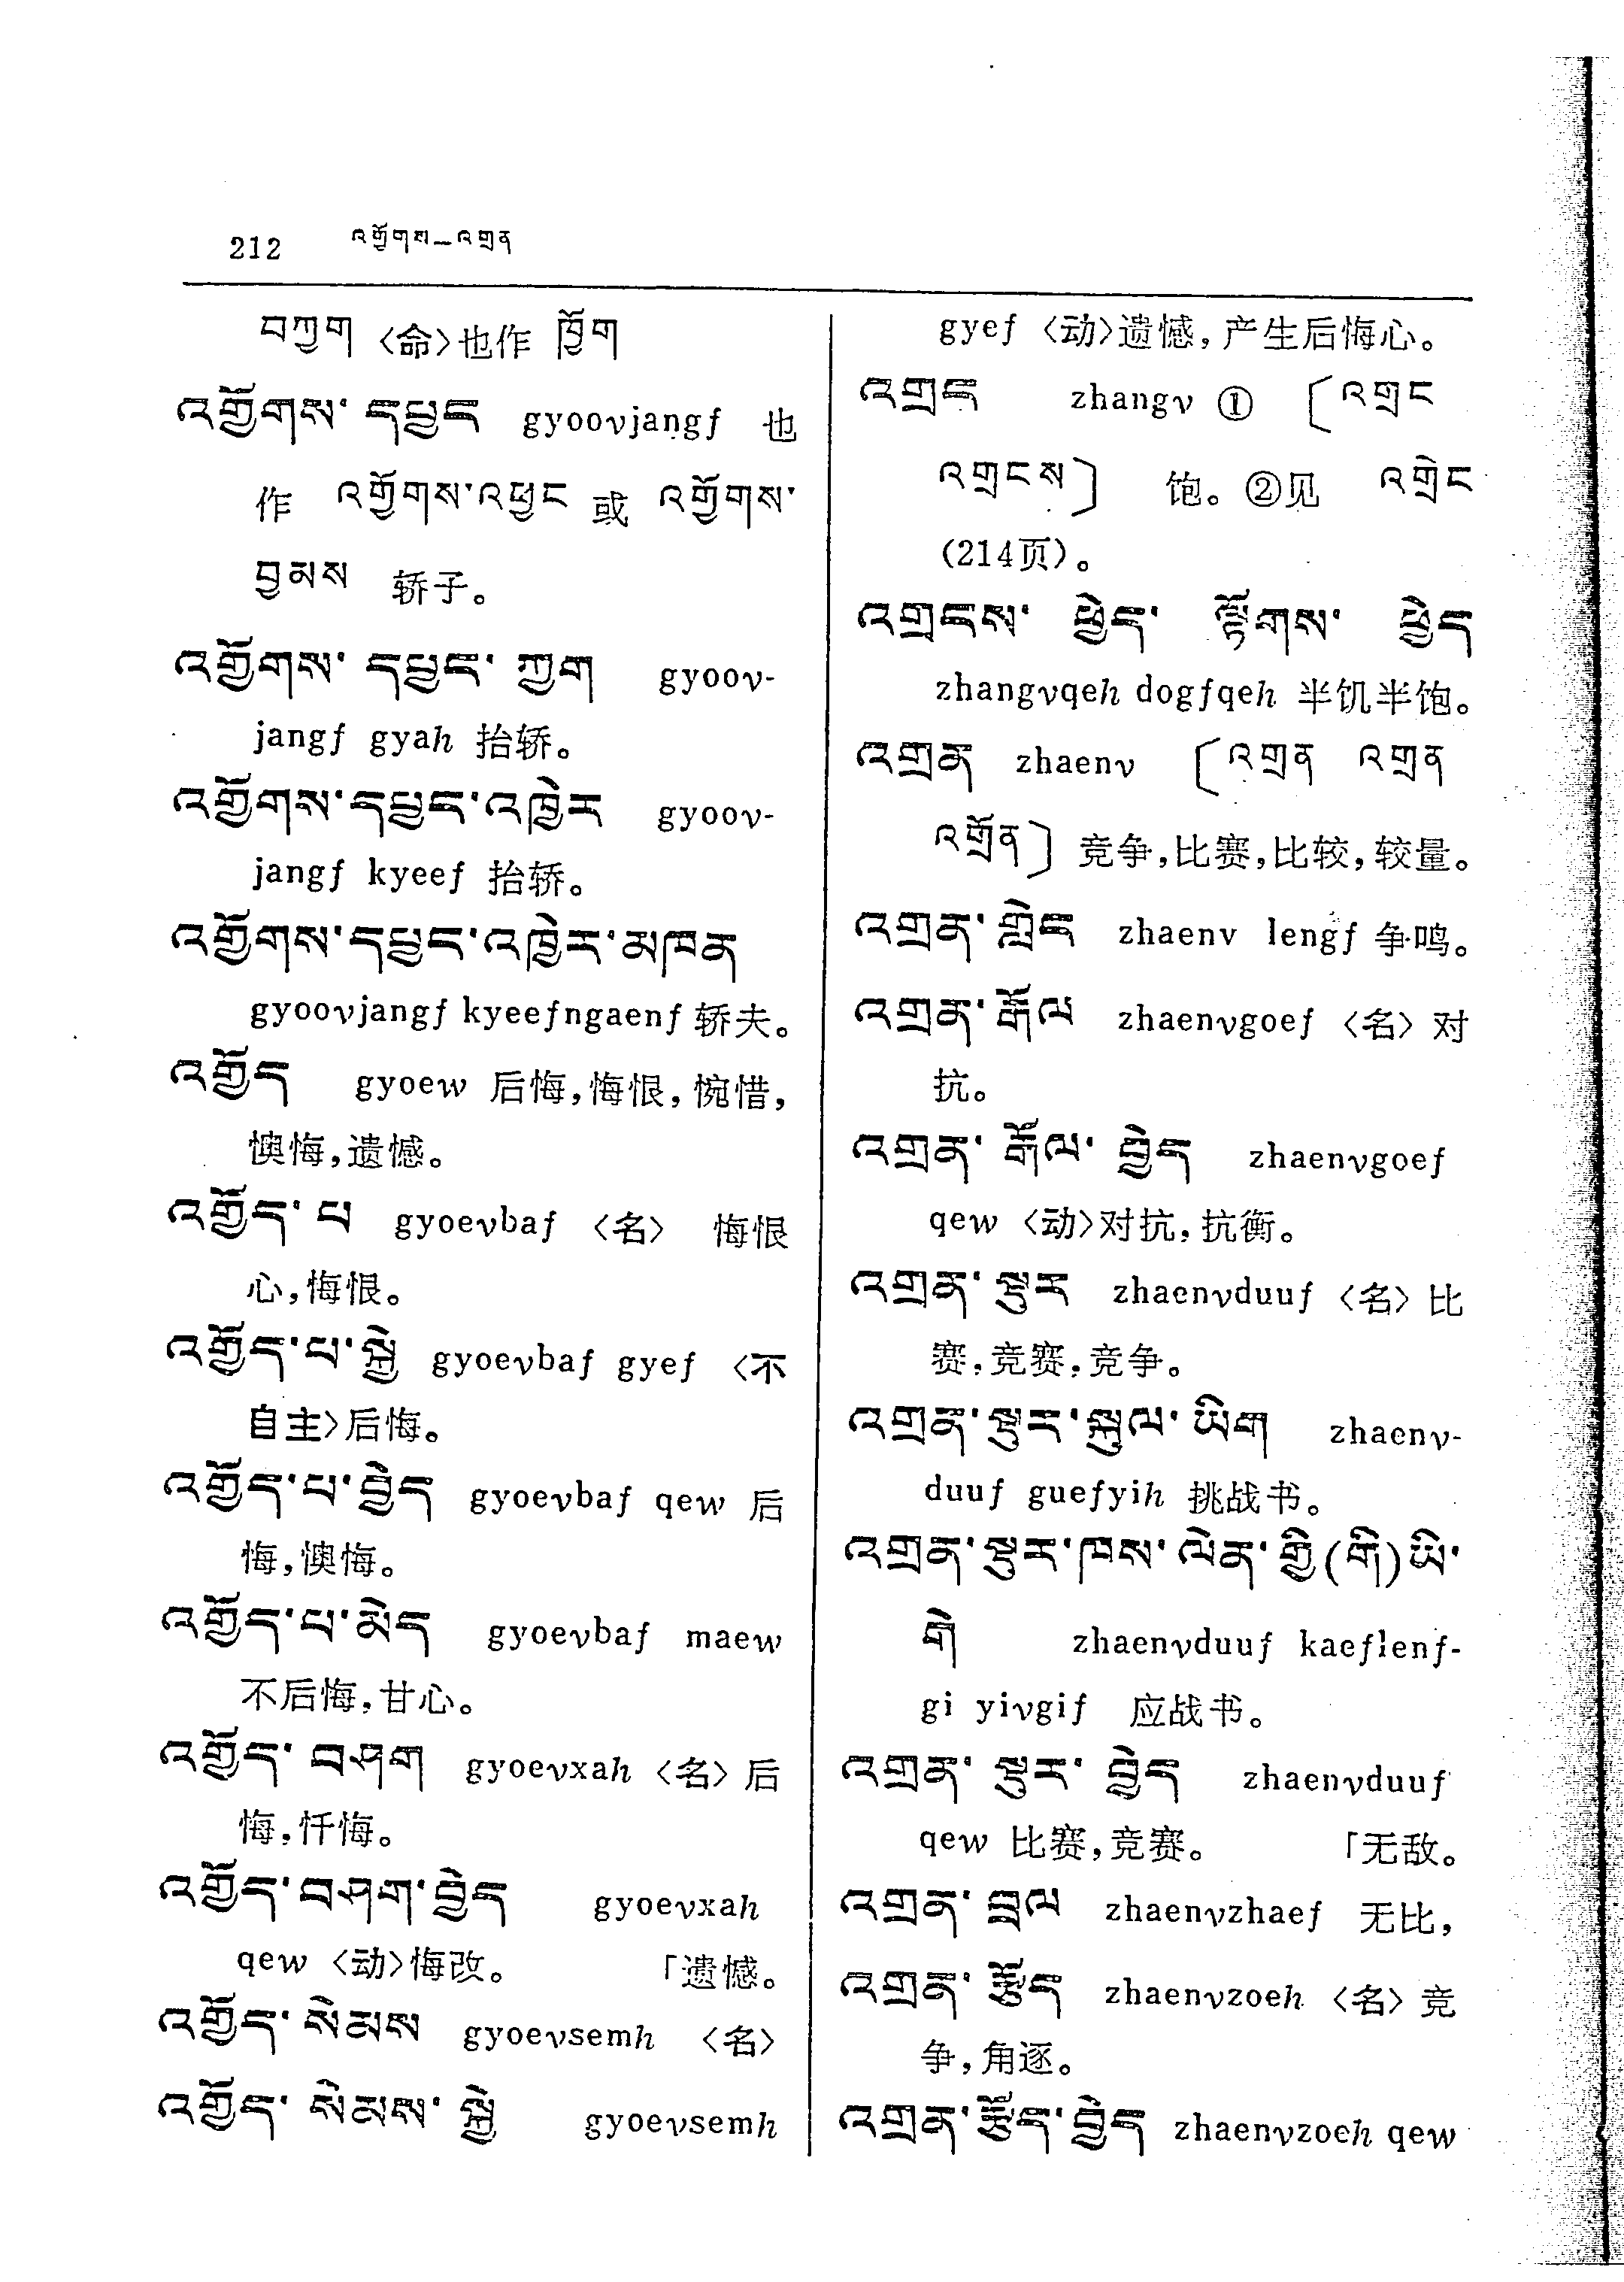 212 འགྱོགས—འགྲན
བཀྱག 〈命〉也作 ཁྱོག
འགྱོགས་ དཔྱང gyoovjangf 也
作 འགྱོགས་འཕྱང 或 འགྱོགས་
བྱམས 轿子。
འགྱོགས་ དཔྱང་ ཀྱག gyoov-
jangf gyah 抬轿。
འགྱོགས་དཔྱང་འཁྱེར gyoov-
jangf kyeef 抬轿。
འགྱོགས་དཔྱང་འཁྱེར་མཁན
gyoovjangf kyeefngaenf 轿夫。
འགྱོད gyoew 后悔，悔恨，惋惜，
懊悔，遗憾。
འགྱོད་ པ gyoevbaf 〈名〉 悔恨
心，悔恨。
འགྱོད་པ་སྐྱེ gyoevbaf gyef 〈不
自主〉后悔。
འགྱོད་པ་བྱེད gyoevbaf qew 后
悔，懊悔。
འགྱོད་པ་མེད gyoevbaf maew
不后悔，甘心。
འགྱོད་ བཤག gyoevxah 〈名〉后
悔，忏悔。
འགྱོད་བཤག་བྱེད gyoevxah
qew 〈动〉悔改。 「遗憾。
འགྱོད་ སེམས gyoevsemh 〈名〉
འགྱོད་ སེམས་ སྐྱེ gyoevsemh
gyef 〈动〉遗憾，产生后悔心。
འགྲང zhangv ① 〔འགྲང
འགྲངས〕 饱。②见 འགྲེང
(214页)。
འགྲངས་ ཕྱེད་ ལྟོགས་ ཕྱེད
zhangvqeh dogfqeh 半饥半饱。
འགྲན zhaenv 〔འགྲན འགྲན
འགྲོན〕竞争，比赛，比较，较量。
འགྲན་ གླེང zhaenv lengf 争鸣。
འགྲན་ རྒོལ zhaenvgoef 〈名〉对
抗。
འགྲན་ རྒོལ་ བྱེད zhaenvgoef
qew 〈动〉对抗，抗衡。
འགྲན་ སྡུར zhaenvduuf 〈名〉比
赛，竞赛，竞争。
འགྲན་སྡུར་སྐུལ་ ཡིག zhaenv-
duuf guefyih 挑战书。
འགྲན་སྡུར་ཁས་ལེན་གྱི(གི)ཡི་
གེ zhaenvduuf kaeflenf-
gi yivgif 应战书。
འགྲན་ སྡུར་ བྱེད zhaenvduuf
qew 比赛，竞赛。 「无敌。
འགྲན་ བྲལ zhaenvzhaef 无比，
འགྲན་ རྩོད zhaenvzoeh 〈名〉竞
争，角逐。
འགྲན་རྩོད་བྱེད zhaenvzoeh qew